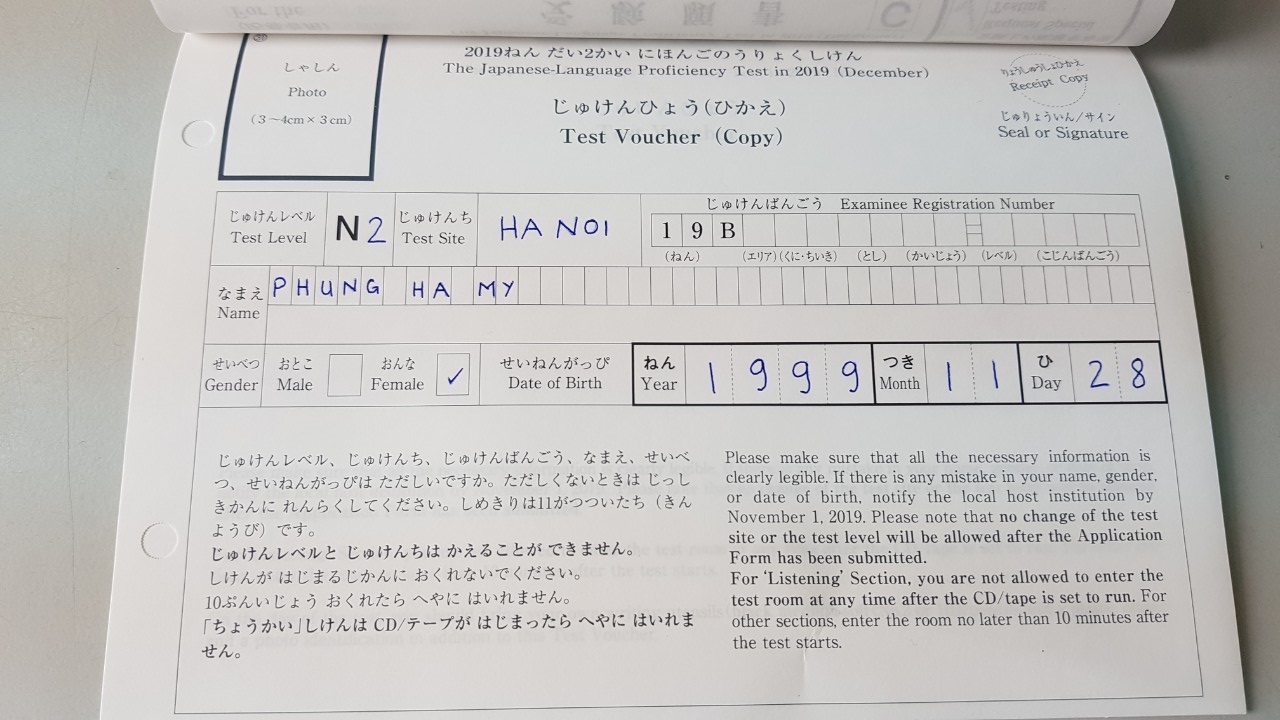 For the
受験願書
C
Testing
Request Special
しゃしん
Photo
(3~4cm×3cm)
2019ねん だい2かい にほんごのうりょくしけん
The Japanese-Language Proficiency Test in 2019 (December)
じゅけんひょう(ひかえ)
Test Voucher (Copy)
りょうしゅうしょひかえ
Receipt Copy
じゅりょういん/サイン
Seal or Signature
じゅけんレベル
Test Level
N2
じゅけんち
Test Site
HANOI
じゅけんばんごう Examinee Registration Number
19B
(ねん) (エリア)(くに・ちいき) (とし) (かいじょう) (レベル) (こじんばんごう)
なまえ
Name
PHUNG HA MY
せいべつ
Gender
おとこ
Male
おんな
Female ✓
せいねんがっぴ
Date of Birth
ねん
Year
1999
つき
Month
11
ひ
Day
28
じゅけんレベル、じゅけんち、じゅけんばんごう、なまえ、せいべ
つ、せいねんがっぴは ただしいですか。ただしくないときは じっし
きかんに れんらくしてください。しめきりは11がつついたち(きん
ようび)です。
じゅけんレベルと じゅけんちは かえることが できません。
しけんが はじまるじかんに おくれないでください。
10ぷんいじょう おくれたら へやに はいれません。
「ちょうかい」しけんは CD/テープが はじまったら へやに はいれま
せん。
Please make sure that all the necessary information is
clearly legible. If there is any mistake in your name, gender,
or date of birth, notify the local host institution by
November 1, 2019. Please note that no change of the test
site or the test level will be allowed after the Application
Form has been submitted.
For 'Listening' Section, you are not allowed to enter the
test room at any time after the CD/tape is set to run. For
other sections, enter the room no later than 10 minutes after
the test starts.